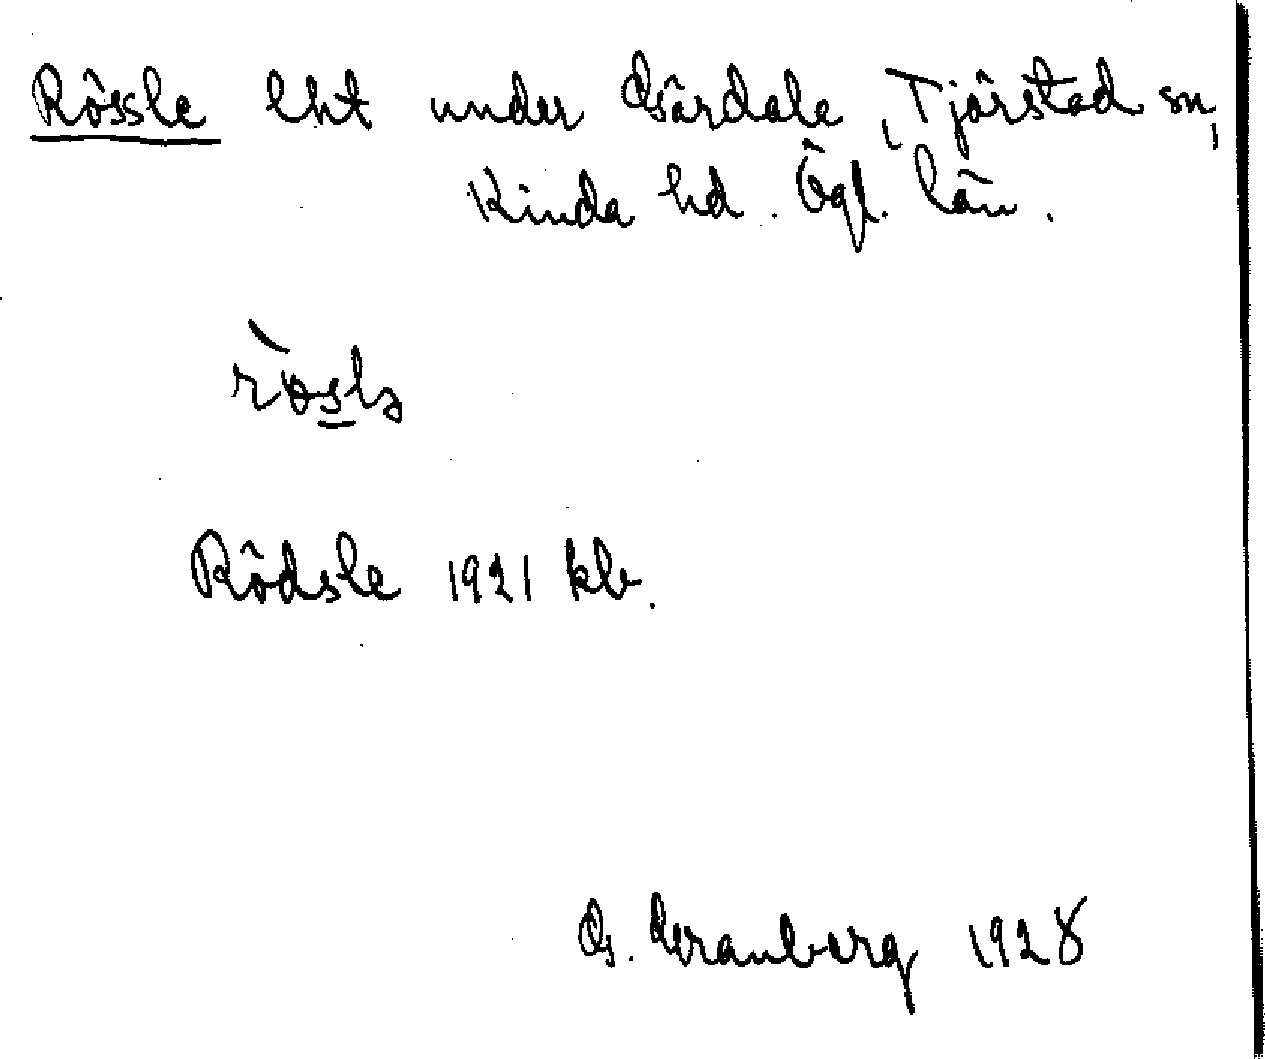 Rössle lht under Gärdala, Tjärstad sn,
Kinda hd. Ögl. län.
rösle
Rödsle 1921 kb.
G. Granberg 1928